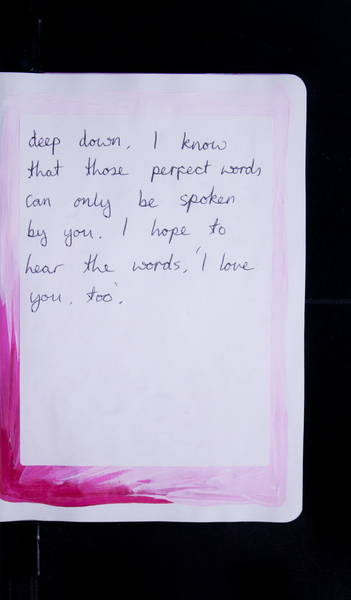 deep down, I know
that those perfect words
can only be spoken
by you. I hope to
hear the words, 'I love
you, too'.